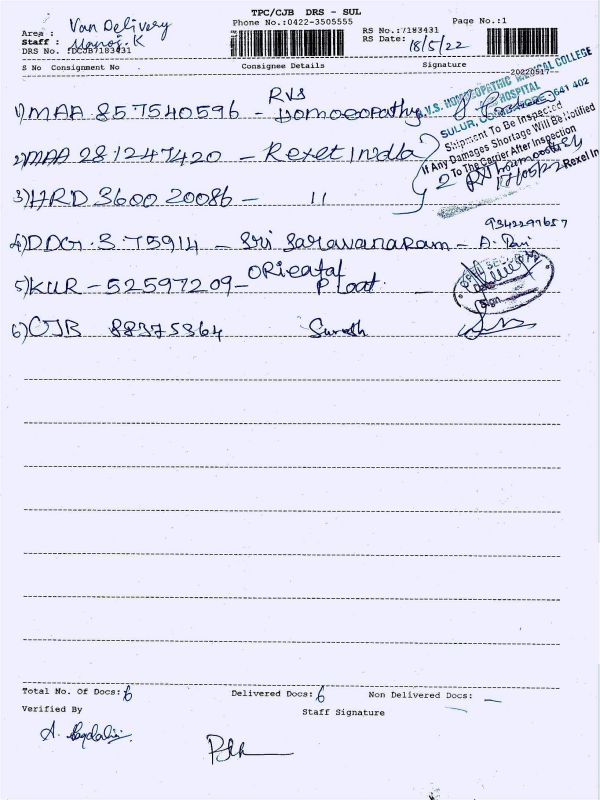 TPC/CJB DRS - SUL
Phone No.:0422-3505555
Page No.:1
Area : Van Delivery
Staff : Manoj.K
DRS No. :DCJB7183431
RS No.:7183431
RS Date: 18/5/22
S No Consignment No
Consignee Details
Signature
20220517
1) MAA 857540596 - RVS Homoeopathy
R.V.S. HOMOEOPATHIC MEDICAL COLLEGE
HOSPITAL
SULUR, 641 402
2) MAA 281247420 - Rexet India
Shipment To Be Inspected
If Any Damages Shortage Will Be Notified
To The Carrier After Inspection
Rexel In
17/05/22
3) HRD 3600 20086 - 11
9342297657
4) DDG.S 75914 - Sri Saravanaram - A.
5) KUR - 52597209 - ORieatal Ploat
Sign
6) CJB 88375364 Suresh
Total No. Of Docs: 6
Delivered Docs: 6
Non Delivered Docs: -
Verified By
Staff Signature